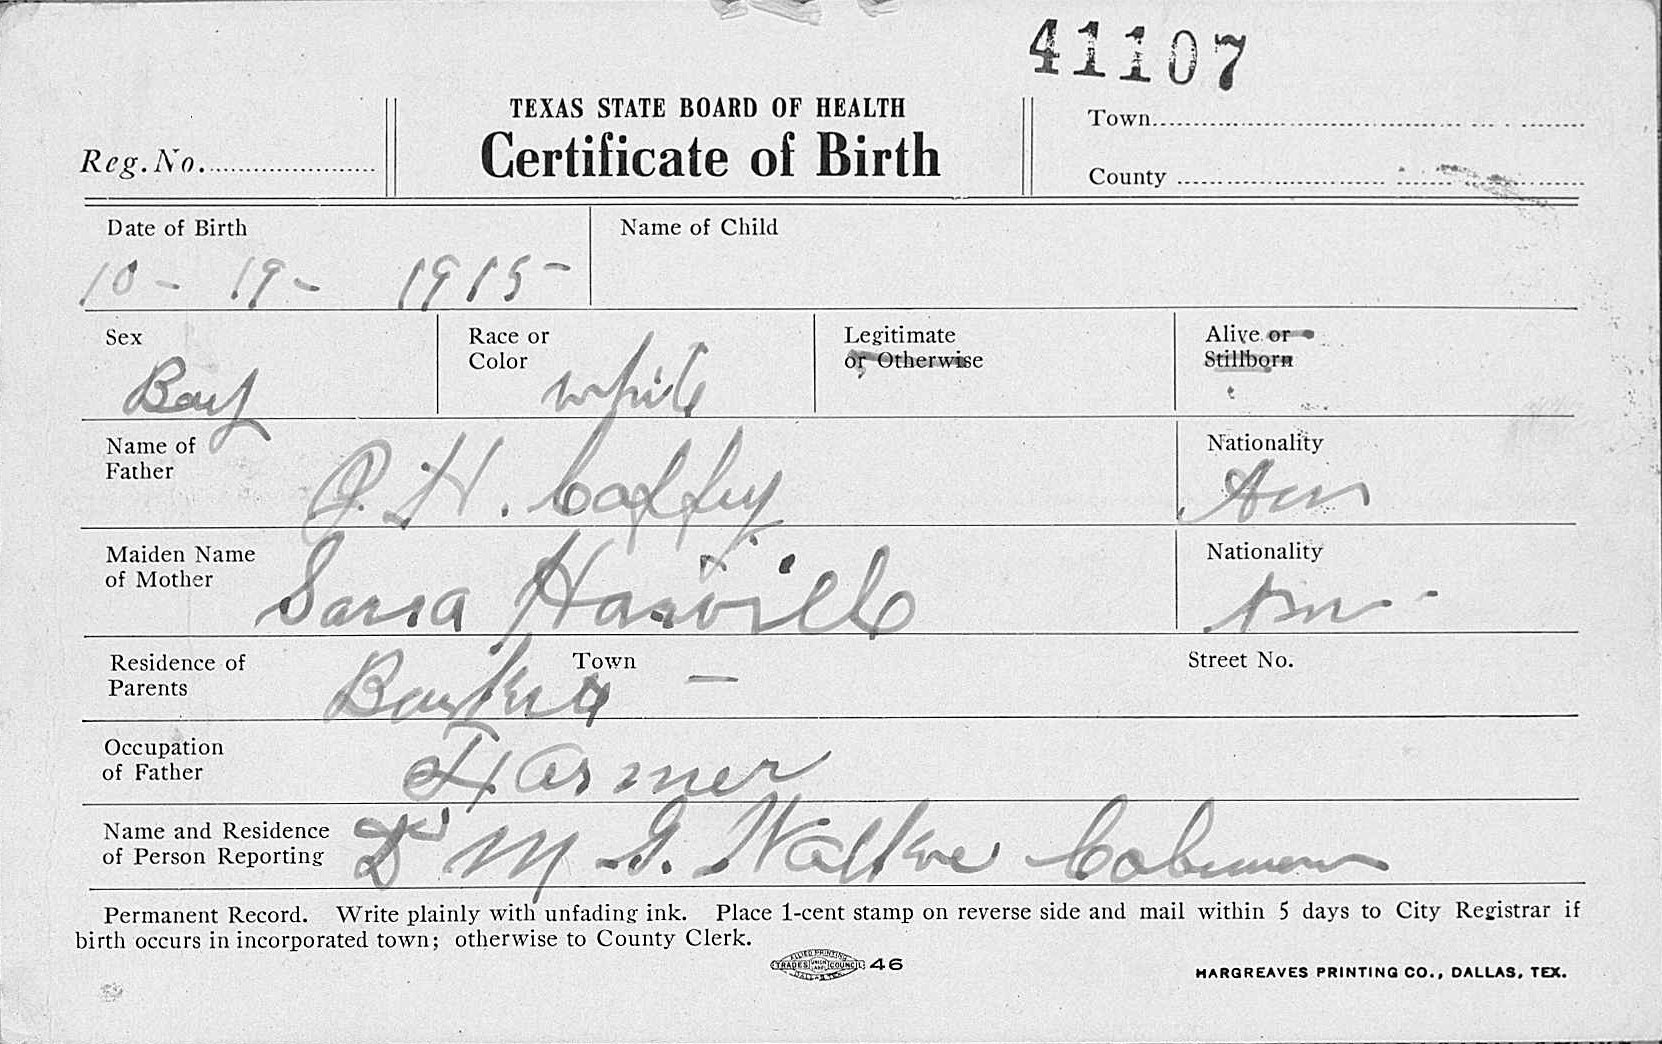 41107
TEXAS STATE BOARD OF HEALTH
Certificate of Birth
Reg. No.
Town
County
Date of Birth
10 - 19 - 1915 -
Name of Child
Sex
Boy
Race or Color
white
Legitimate or Otherwise
Alive or Stillborn
Name of Father
H. Coffey
Nationality
Am
Maiden Name of Mother
Sarra
Nationality
Am -
Residence of Parents
Town
-
Street No.
Occupation of Father
Farmer
Name and Residence of Person Reporting
Dr M G. Walker Coleman
Permanent Record. Write plainly with unfading ink. Place 1-cent stamp on reverse side and mail within 5 days to City Registrar if
birth occurs in incorporated town; otherwise to County Clerk.
ALLIED PRINTING
TRADES UNION LABEL COUNCIL 46
DALLAS TEX.
HARGREAVES PRINTING CO., DALLAS, TEX.